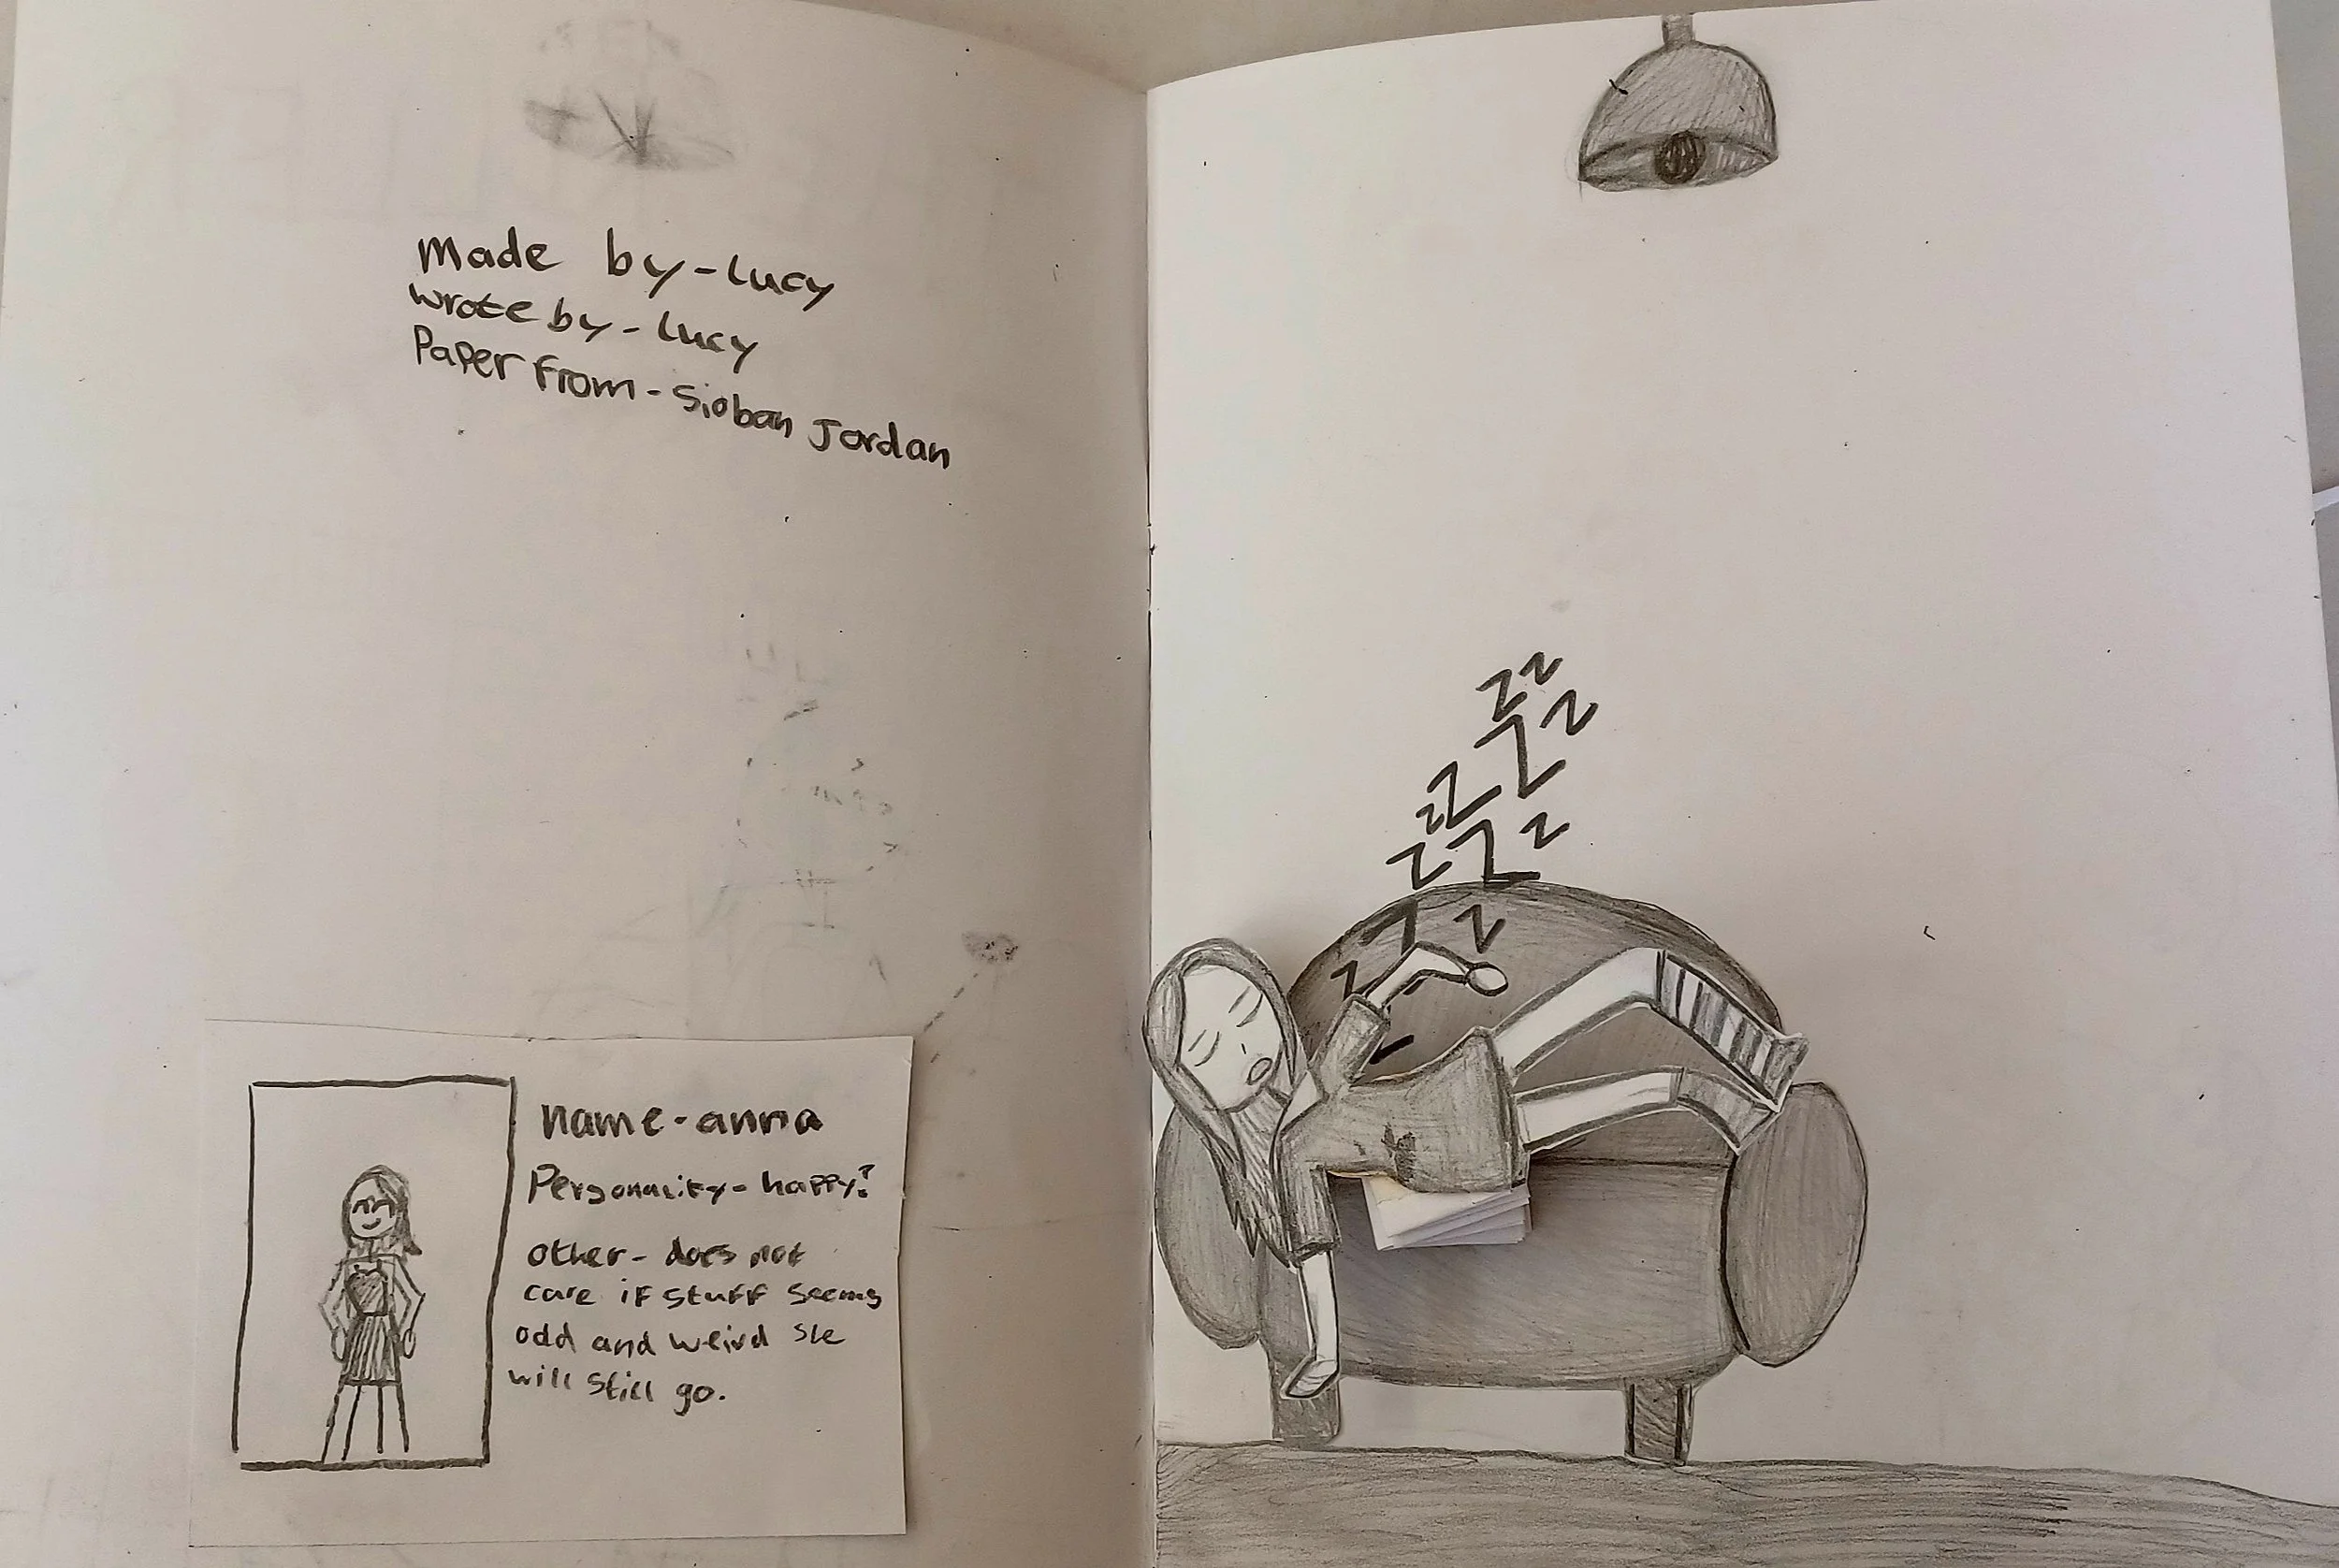 Made by-Lucy
wrote by-Lucy
Paper From-Sioban Jordan
name-anna
Personality-happy?
other-does not
care if stuff seems
odd and weird she
will still go.
zz
z
z
z
z
z
z
z
z
z
z
z